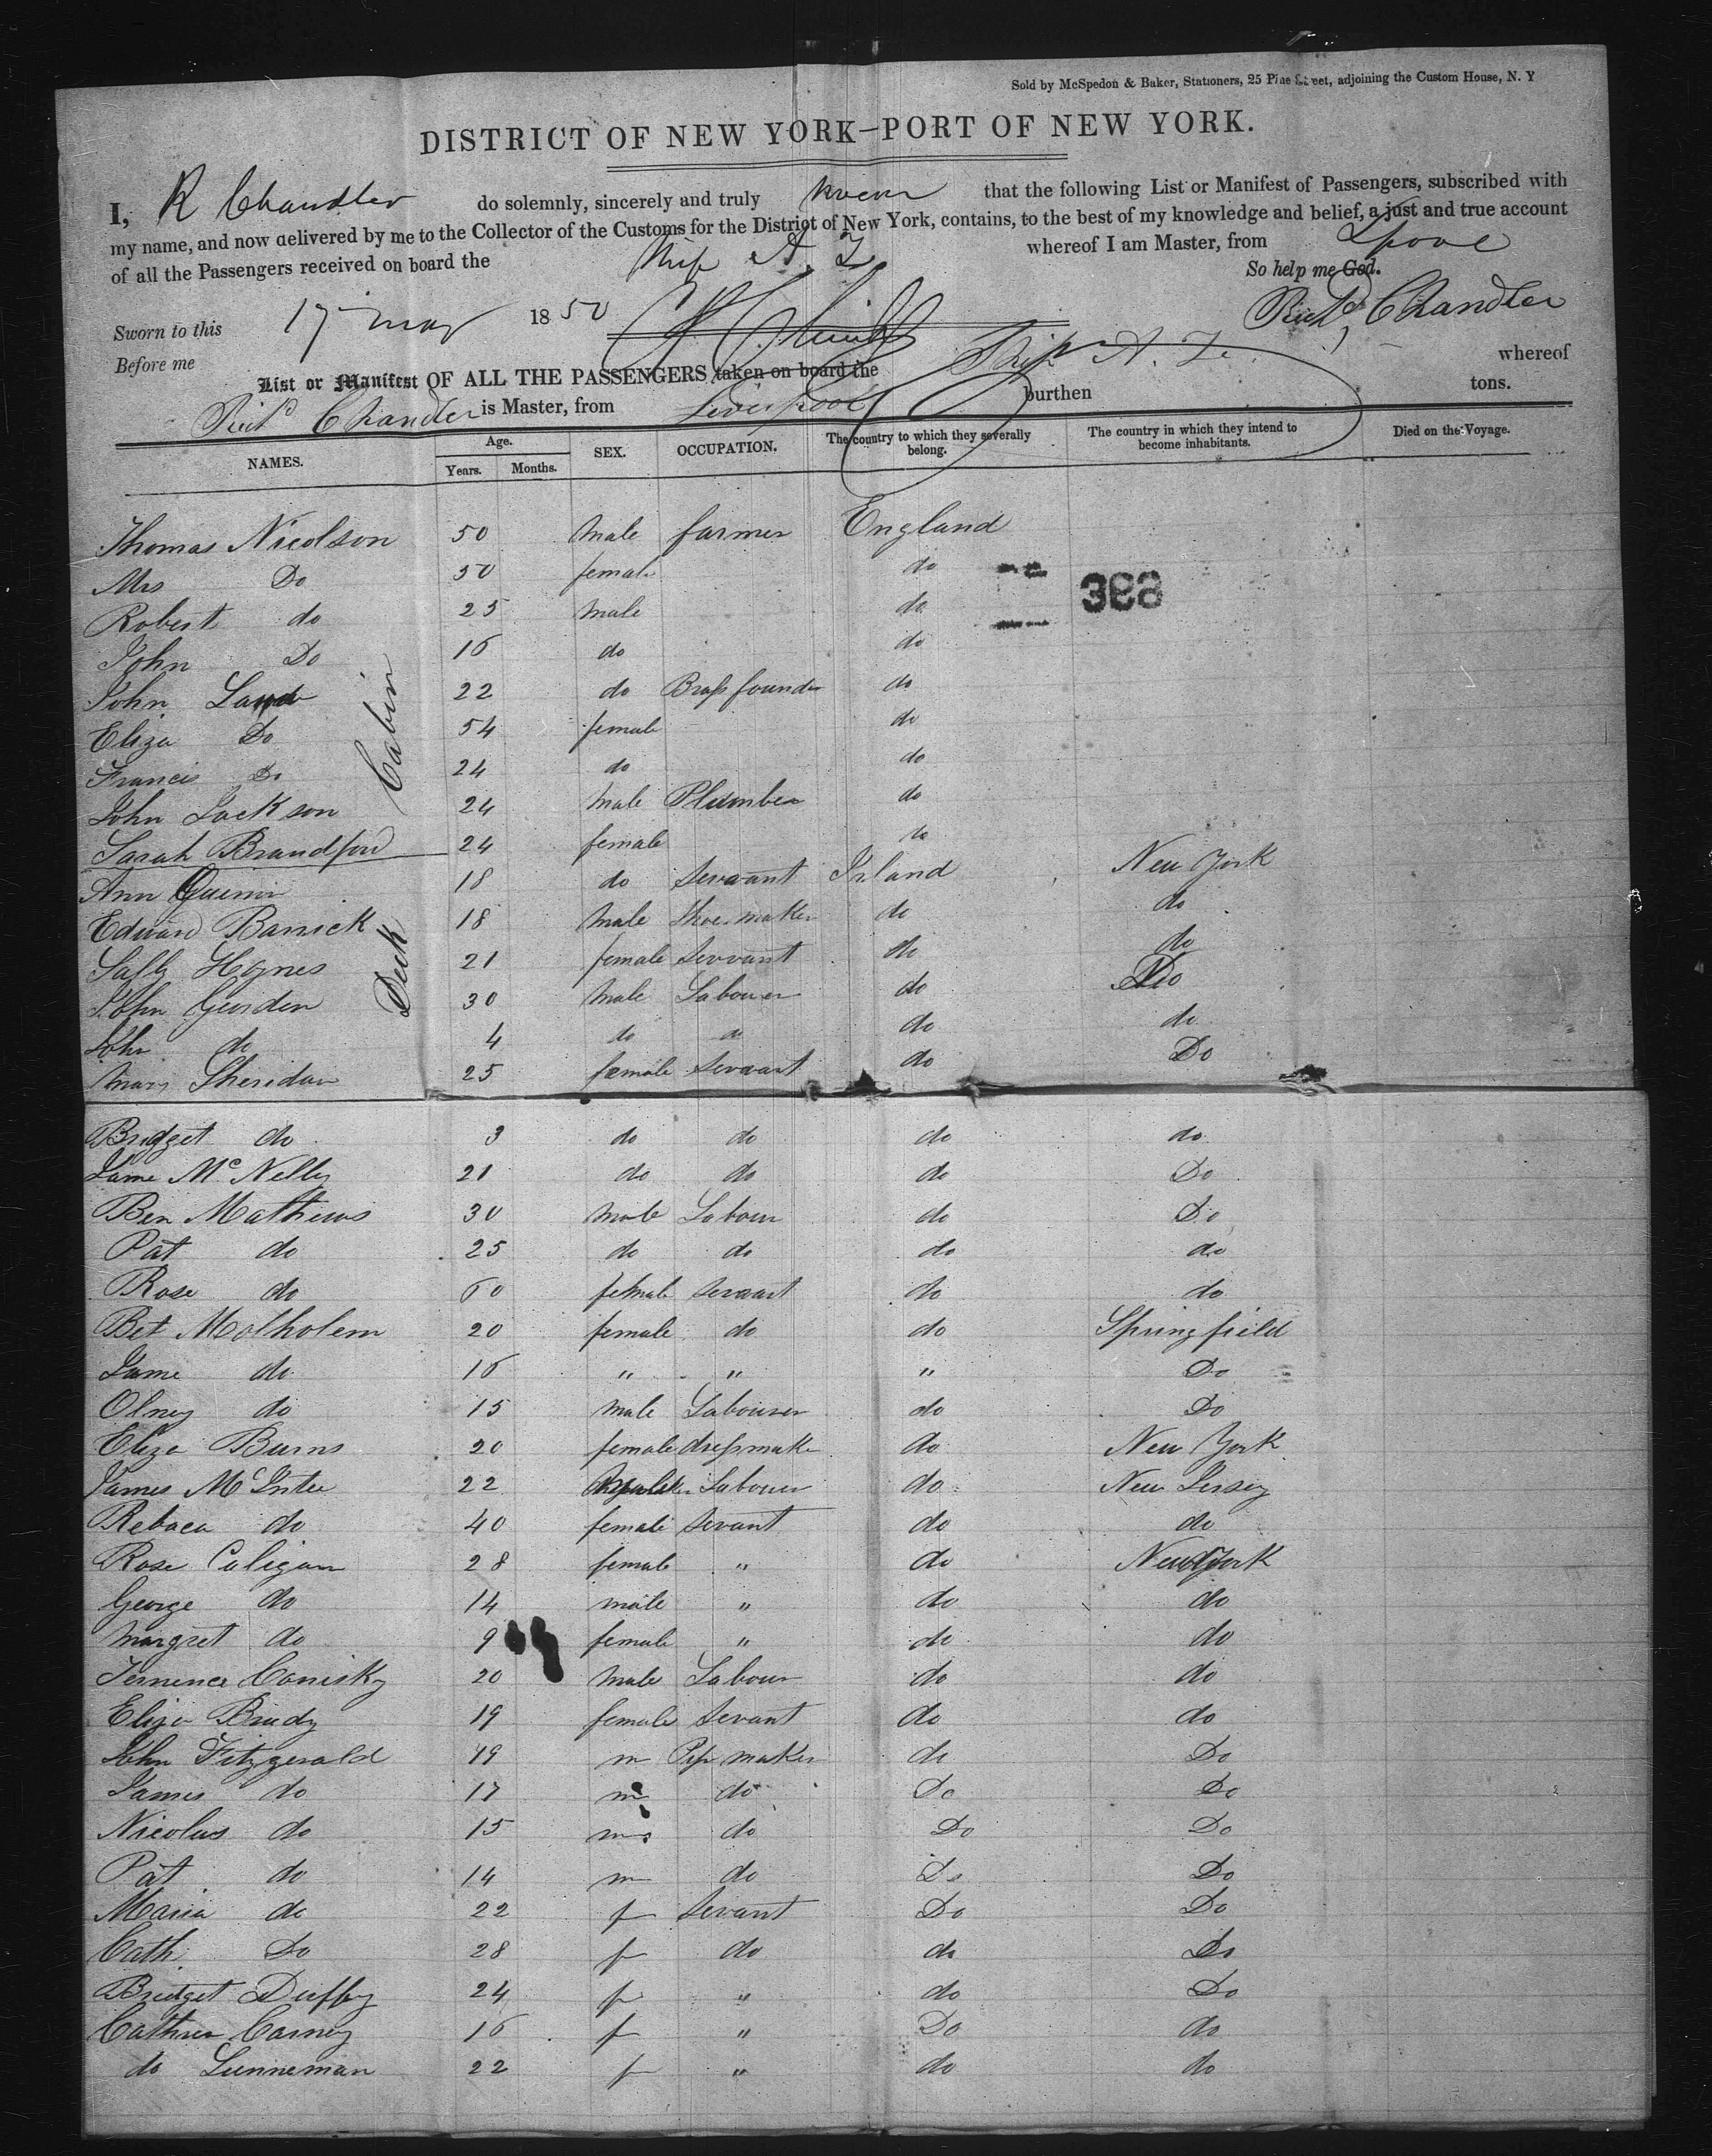 Sold by McSpedon & Baker, Stationers, 25 Pine Street, adjoining the Custom House, N. Y
DISTRICT OF NEW YORK—PORT OF NEW YORK.
I, R Chandler do solemnly, sincerely and truly swear that the following List or Manifest of Passengers, subscribed with
my name, and now delivered by me to the Collector of the Customs for the District of New York, contains, to the best of my knowledge and belief, a just and true account
of all the Passengers received on board the Ship A. Z. whereof I am Master, from Lpool
So help me God.
Sworn to this 17 may 1850 Richd Chandler
Before me
List or Manifest OF ALL THE PASSENGERS taken on board the Ship A. Z. whereof
Richd Chandler is Master, from Liverpool burthen tons.
NAMES. Age. Years. Months. SEX. OCCUPATION. The country to which they severally belong. The country in which they intend to become inhabitants. Died on the Voyage.
Thomas Nicolson 50 male farmer England
Mrs Do 50 female do
398
Robert do 25 male do
John Do 16 do do
Cabin
John 22 do Brass founder do
Eliza Do 54 female do
Francis Do 24 do do
John Jackson 24 male Plumber do
Sarah Brandford 24 female do
Deck
Ann Quinn 18 do Servant Irland New York
Edward Barrick 18 male Shoe maker do do
Sally Hoynes 21 female Servant do do
John Geordon 30 male Labourer do Do
John do 4 do do do do
Mary Sheridan 25 female Servant do Do
Bridget do 3 do do do do
Jame Mc Nelly 21 do do do Do
Ben Mathews 30 male Labour do Do
Pat do 25 do do do do
Rose do 60 female servant do do
Bet Molholem 20 female do do Springfield
Jame do 16 " " " Do
Olney do 15 male Labourer do Do
Eliza Burns 20 female dressmaker do New York
James McIntee 22 male Labourer do New Jersey
Rebaca do 40 female servant do do
Rose Caligan 28 female " do New York
George do 14 male " do do
Margret do 9 female " do do
Terrence Conisky 20 male Labour do do
Eliza Brady 19 female Servant do do
John Fitzgerald 19 m Pip maker do Do
James do 17 m do Do Do
Nicolus do 15 m do Do Do
Pat do 14 m do Do Do
Maria do 22 f Servant Do Do
Cath. Do 28 f do do Do
Bridget Duffy 24 f " do Do
Cathrin Carney 16 f " Do do
do Lunneman 22 f " do do